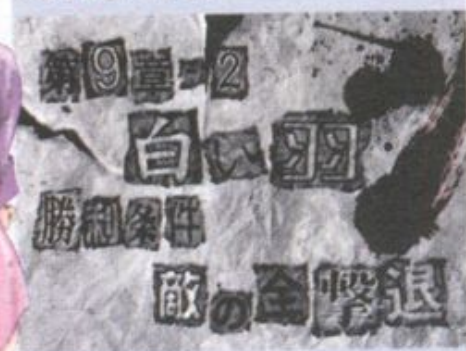 第9章-2
白い羽
勝利条件
敵の全撃退